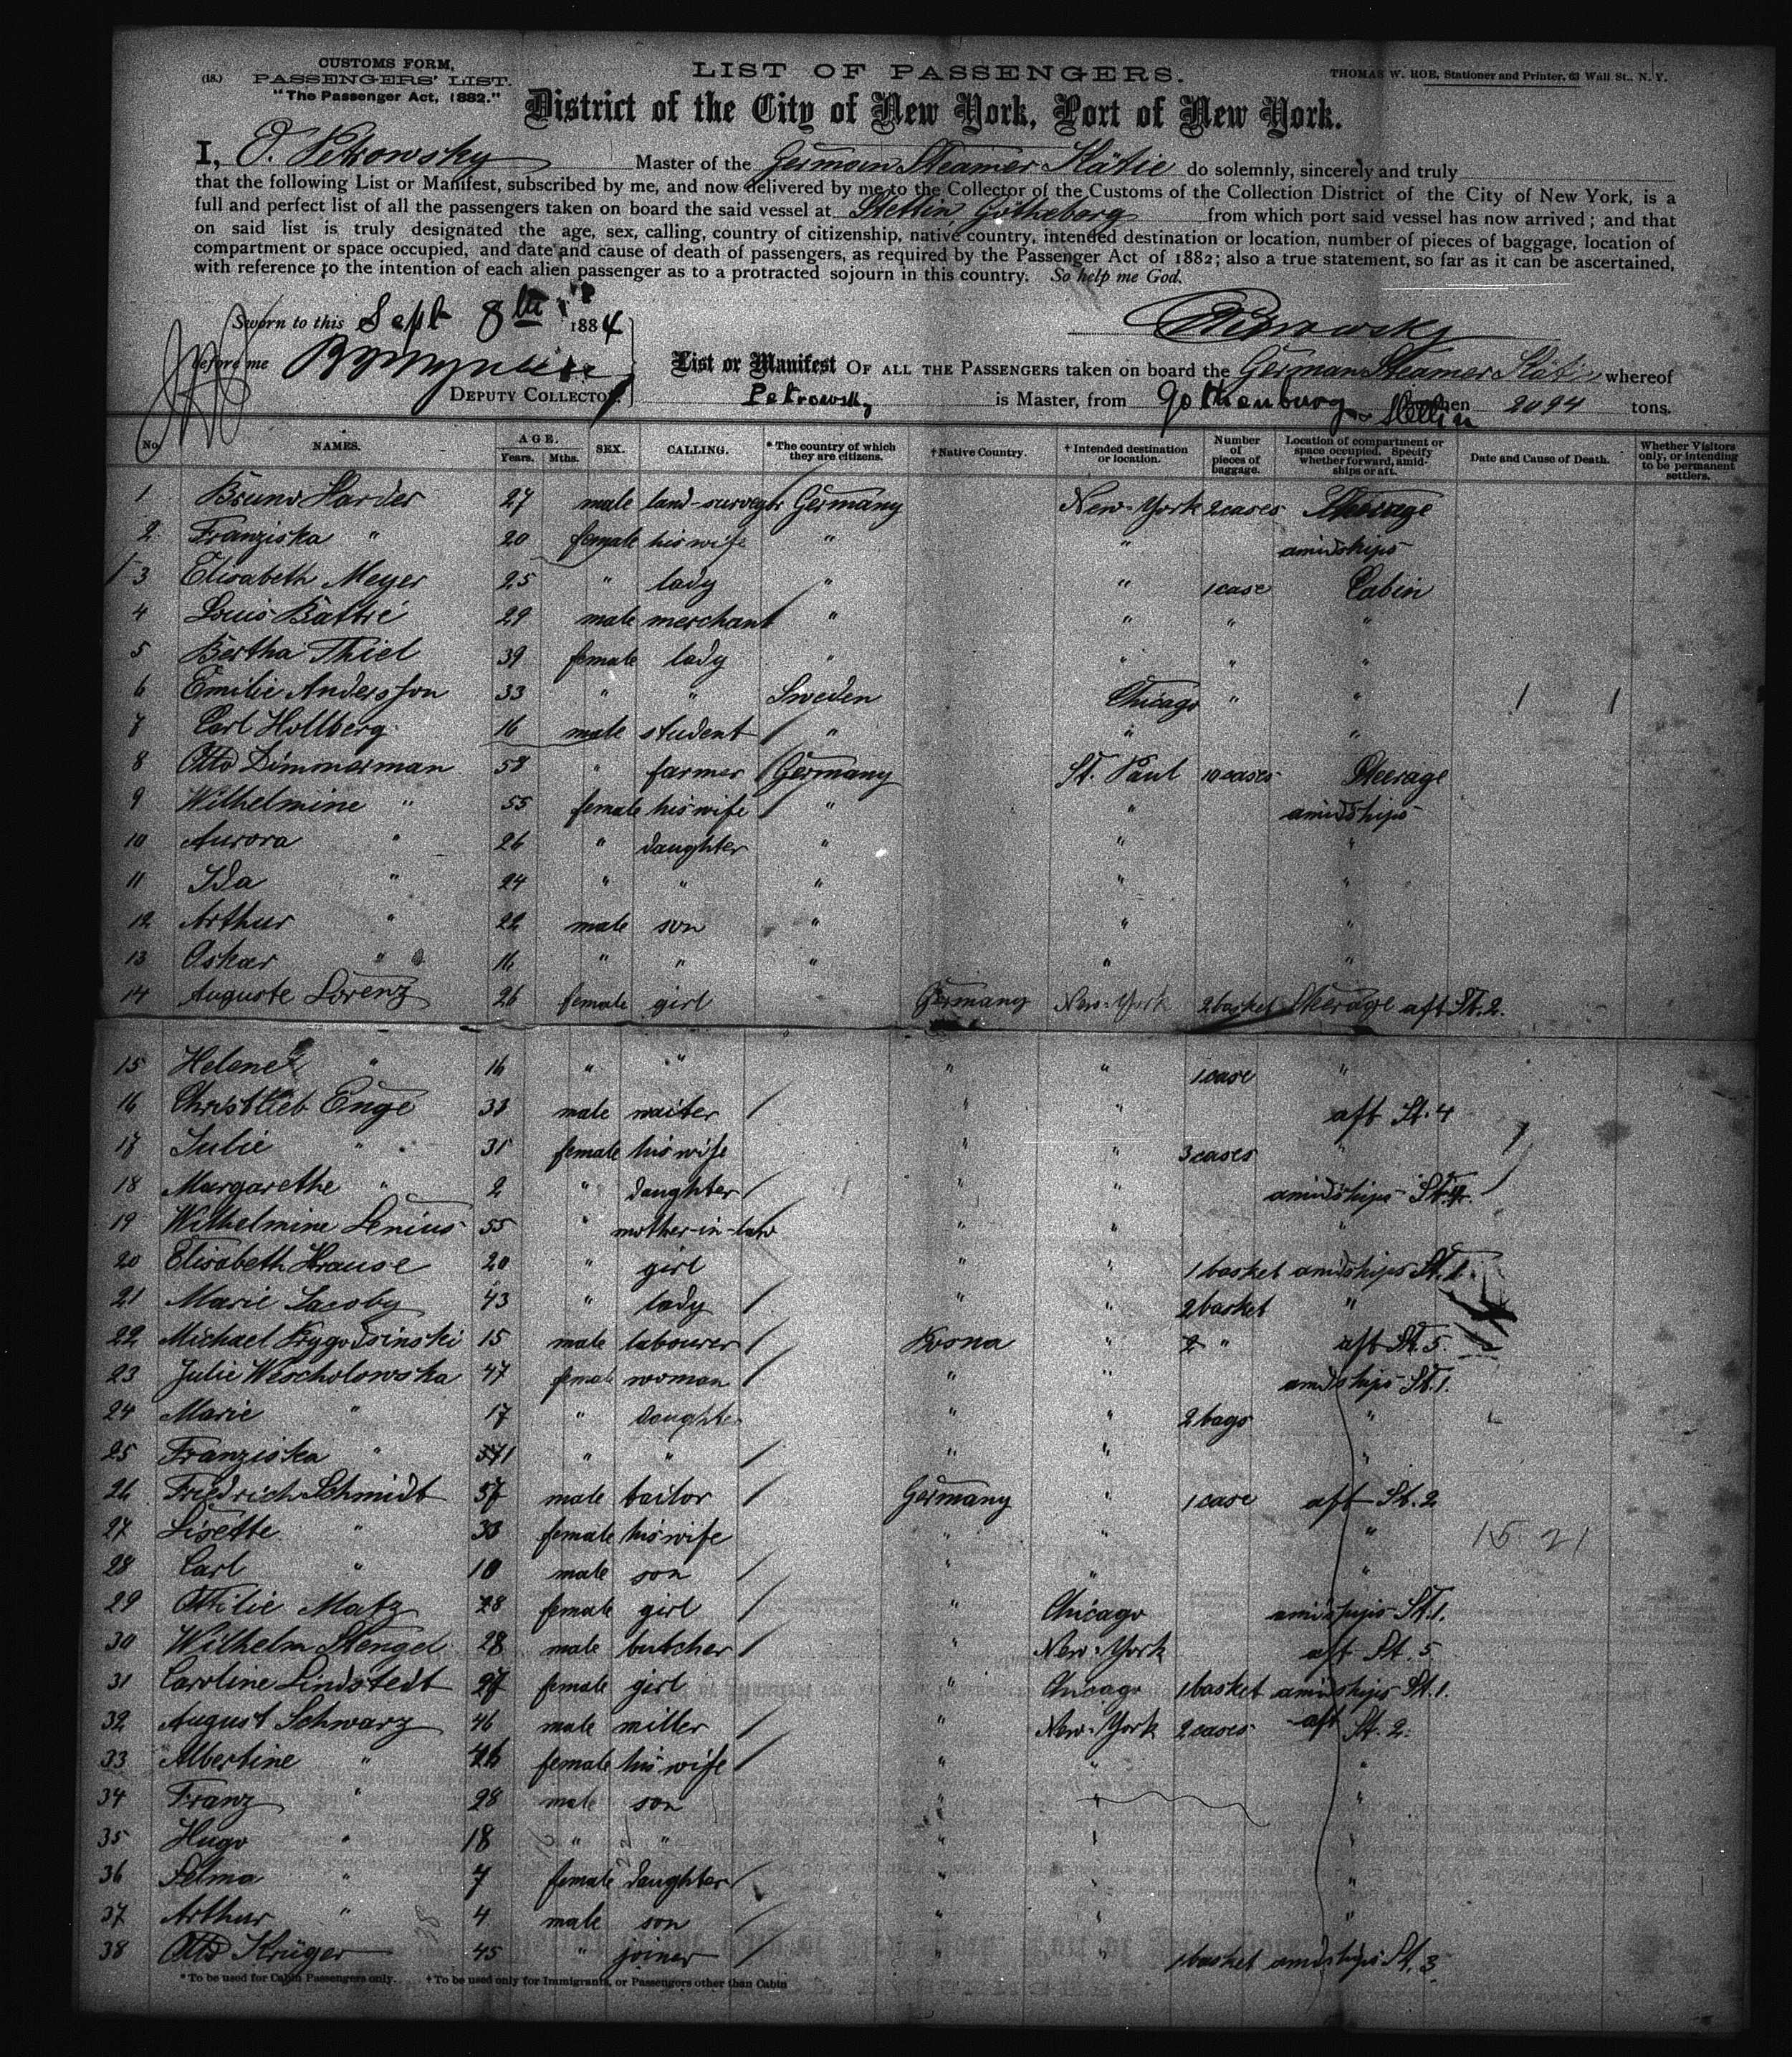 CUSTOMS FORM,
(18.) PASSENGERS' LIST.
"The Passenger Act, 1882."
LIST OF PASSENGERS.
THOMAS W. ROE, Stationer and Printer, 63 Wall St., N. Y.
District of the City of New York, Port of New York.
I, O. Petrowsky Master of the German Steamer Kätie do solemnly, sincerely and truly
that the following List or Manifest, subscribed by me, and now delivered by me to the Collector of the Customs of the Collection District of the City of New York, is a
full and perfect list of all the passengers taken on board the said vessel at Stettin, Götheborg from which port said vessel has now arrived; and that
on said list is truly designated the age, sex, calling, country of citizenship, native country, intended destination or location, number of pieces of baggage, location of
compartment or space occupied, and date and cause of death of passengers, as required by the Passenger Act of 1882; also a true statement, so far as it can be ascertained,
with reference to the intention of each alien passenger as to a protracted sojourn in this country. So help me God.
Sworn to this Sept 8th 1884
Petrowsky
before me
DEPUTY COLLECTOR.
List or Manifest OF ALL THE PASSENGERS taken on board the German Steamer Kätie whereof
Petrowsky is Master, from Gothenburg & Stettin burthen 2094 tons.
No. NAMES. AGE. Years. Mths. SEX. CALLING. * The country of which they are citizens. † Native Country. † Intended destination or location. Number of pieces of baggage. Location of compartment or space occupied. Specify whether forward, amidships or aft. Date and Cause of Death. Whether Visitors only, or intending to be permanent settlers.
1 Bruno Harder 27 male land-surveyor Germany New-York 2 cases Steerage
2 Franziska " 20 female his wife " " amidships
3 Elisabeth Meyer 25 " lady " " 1 case Cabin
4 Louis Battré 29 male merchant " " " "
5 Bertha Thiel 39 female lady " " " "
6 Emilie Andersson 33 " " Sweden Chicago " "
7 Carl Hollberg 16 male student " " "
8 Otto Zimmerman 58 " farmer Germany St. Paul 10 cases Steerage
9 Wilhelmine " 55 female his wife " " amidships
10 Aurora " 26 " daughter " " "
11 Ida " 24 " " " " "
12 Arthur " 22 male son " " "
13 Oskar " 16 " " " " "
14 Auguste Lorenz 26 female girl Germany New-York 2 basket Steerage aft St. 2.
15 Helene " 16 " " " " 1 case "
16 Christlieb Enge 33 male waiter " " aft St. 4
17 Julie " 31 female his wife " " 3 cases "
18 Margarethe " 2 " daughter " " amidships St.
19 Wilhelmine Lenius 55 " mother-in-law " " "
20 Elisabeth Krause 20 " girl " " 1 basket amidships St. 1.
21 Marie Jacoby 43 " lady " " 2 basket "
22 Michael Prygodsinski 15 male labourer Posna " 2 " aft St. 5.
23 Julie Wescholowska 47 female woman " " amidships St. 1.
24 Marie " 17 " daughter " " 2 bags "
25 Franziska " " " " " "
26 Friedrich Schmidt 57 male tailor Germany " 1 case aft St. 2
27 Lisette " 33 female his wife " " "
15 21
28 Carl " 10 male son " " "
29 Ottilie Matz 28 female girl " Chicago amidships St. 1.
30 Wilhelm Stengel 28 male butcher " New-York aft St. 5
31 Caroline Lindstedt 27 female girl " Chicago 1 basket amidships St. 1.
32 August Schwarz 46 male miller " New-York 2 cases aft St. 2.
33 Albertine " 46 female his wife " " "
34 Franz " 28 male son " " "
35 Hugo " 18 " " " " "
36 Selma " 7 female daughter " " "
37 Arthur " 4 male son " " "
38 Otto Krüger 45 " joiner " " 1 basket amidships St. 3.
* To be used for Cabin Passengers only. † To be used only for Immigrants, or Passengers other than Cabin